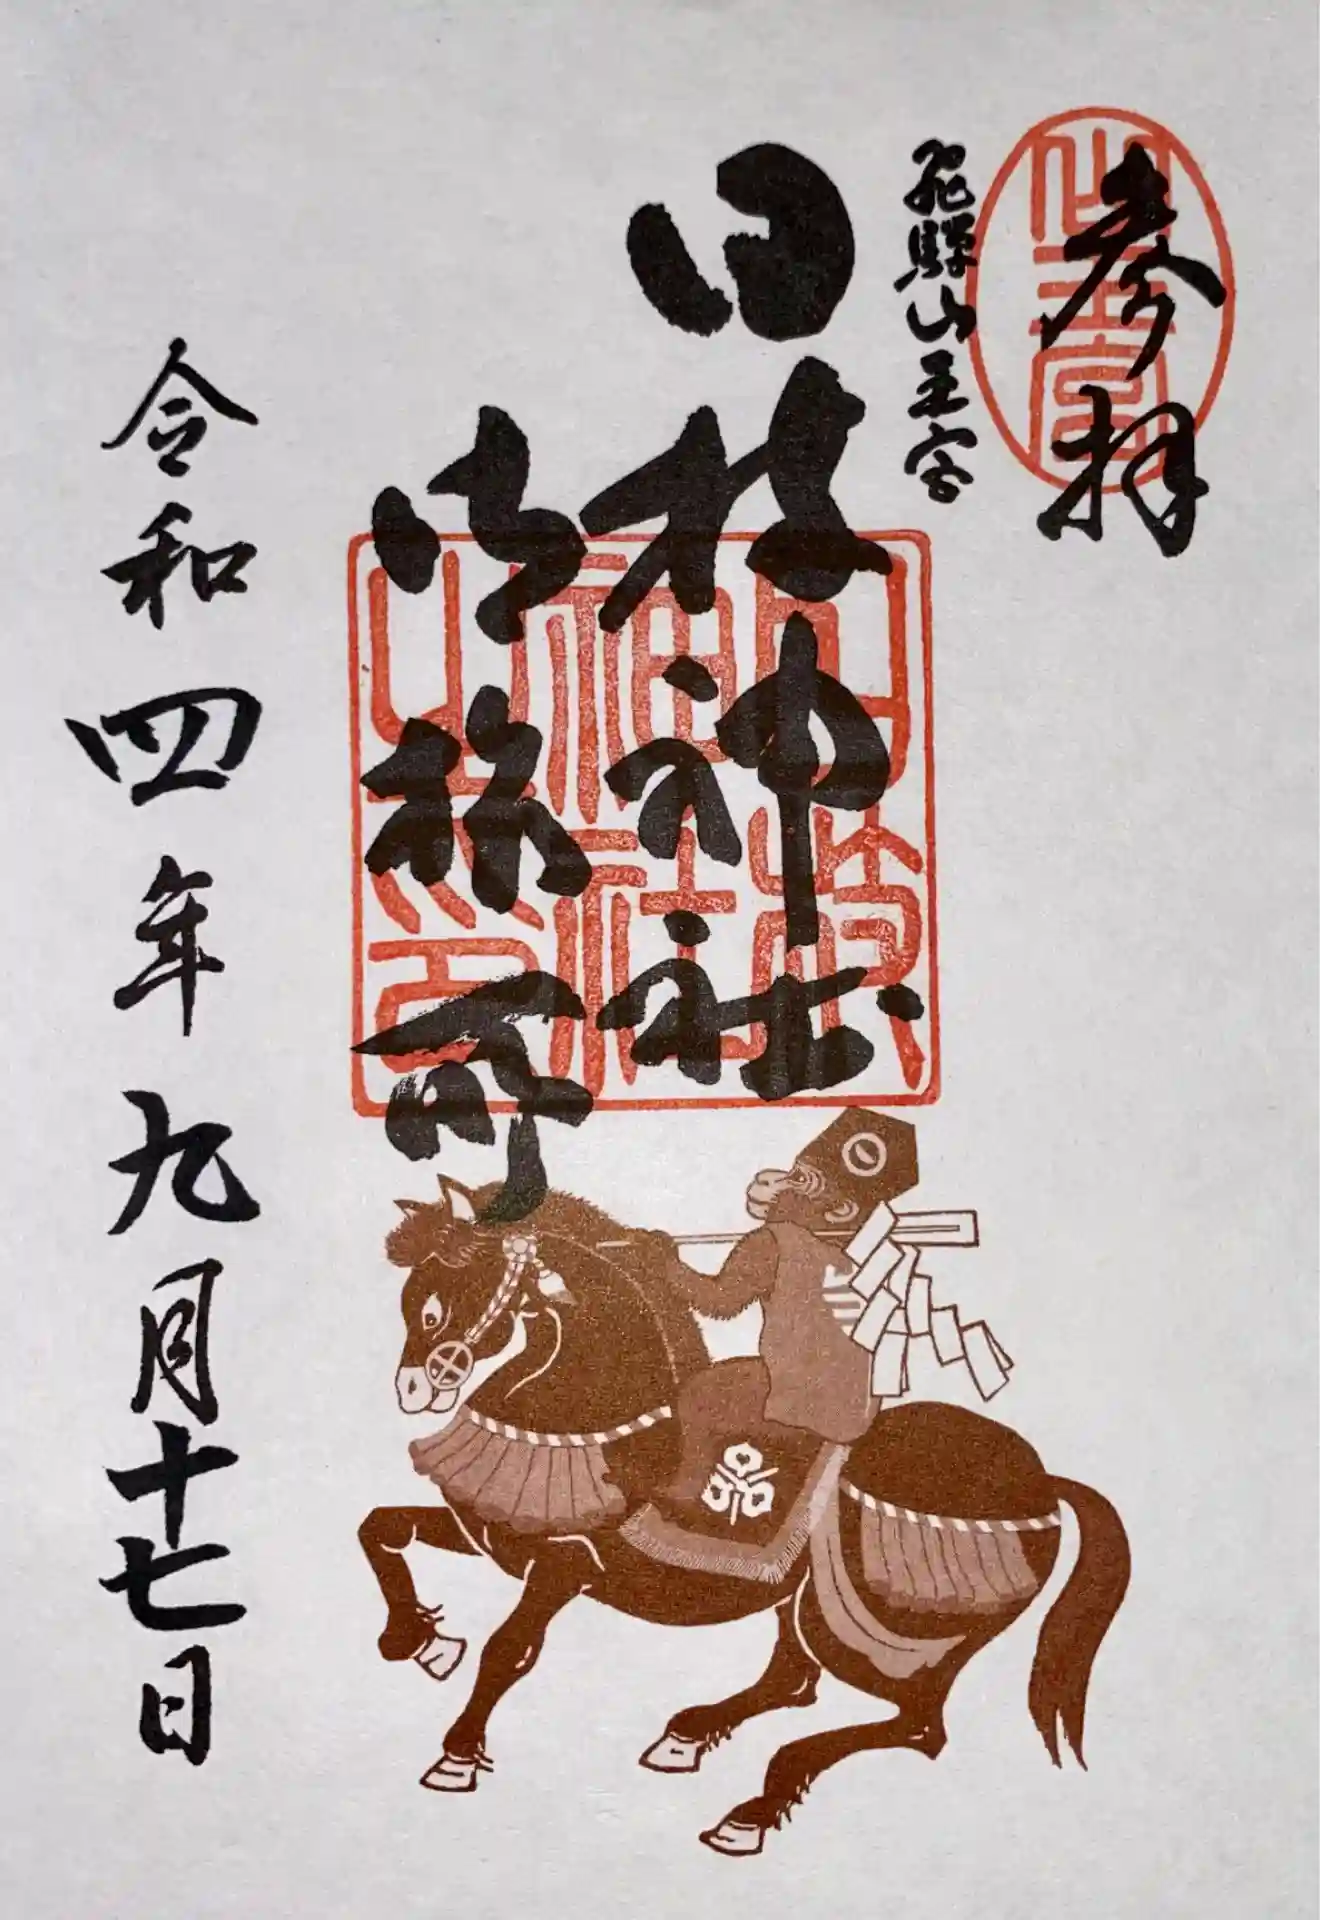 参拝
飛騨山王宮
日枝神社
御旅所
令和四年九月十七日
山王宮
日枝
神社
之印